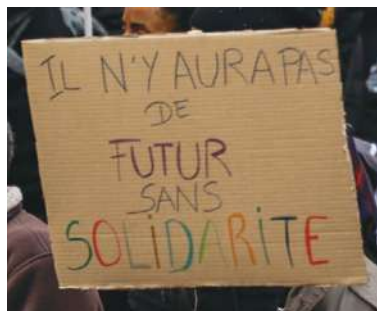 IL N'Y AURA PAS
DE
FUTUR
SANS
SOLiDARiTE